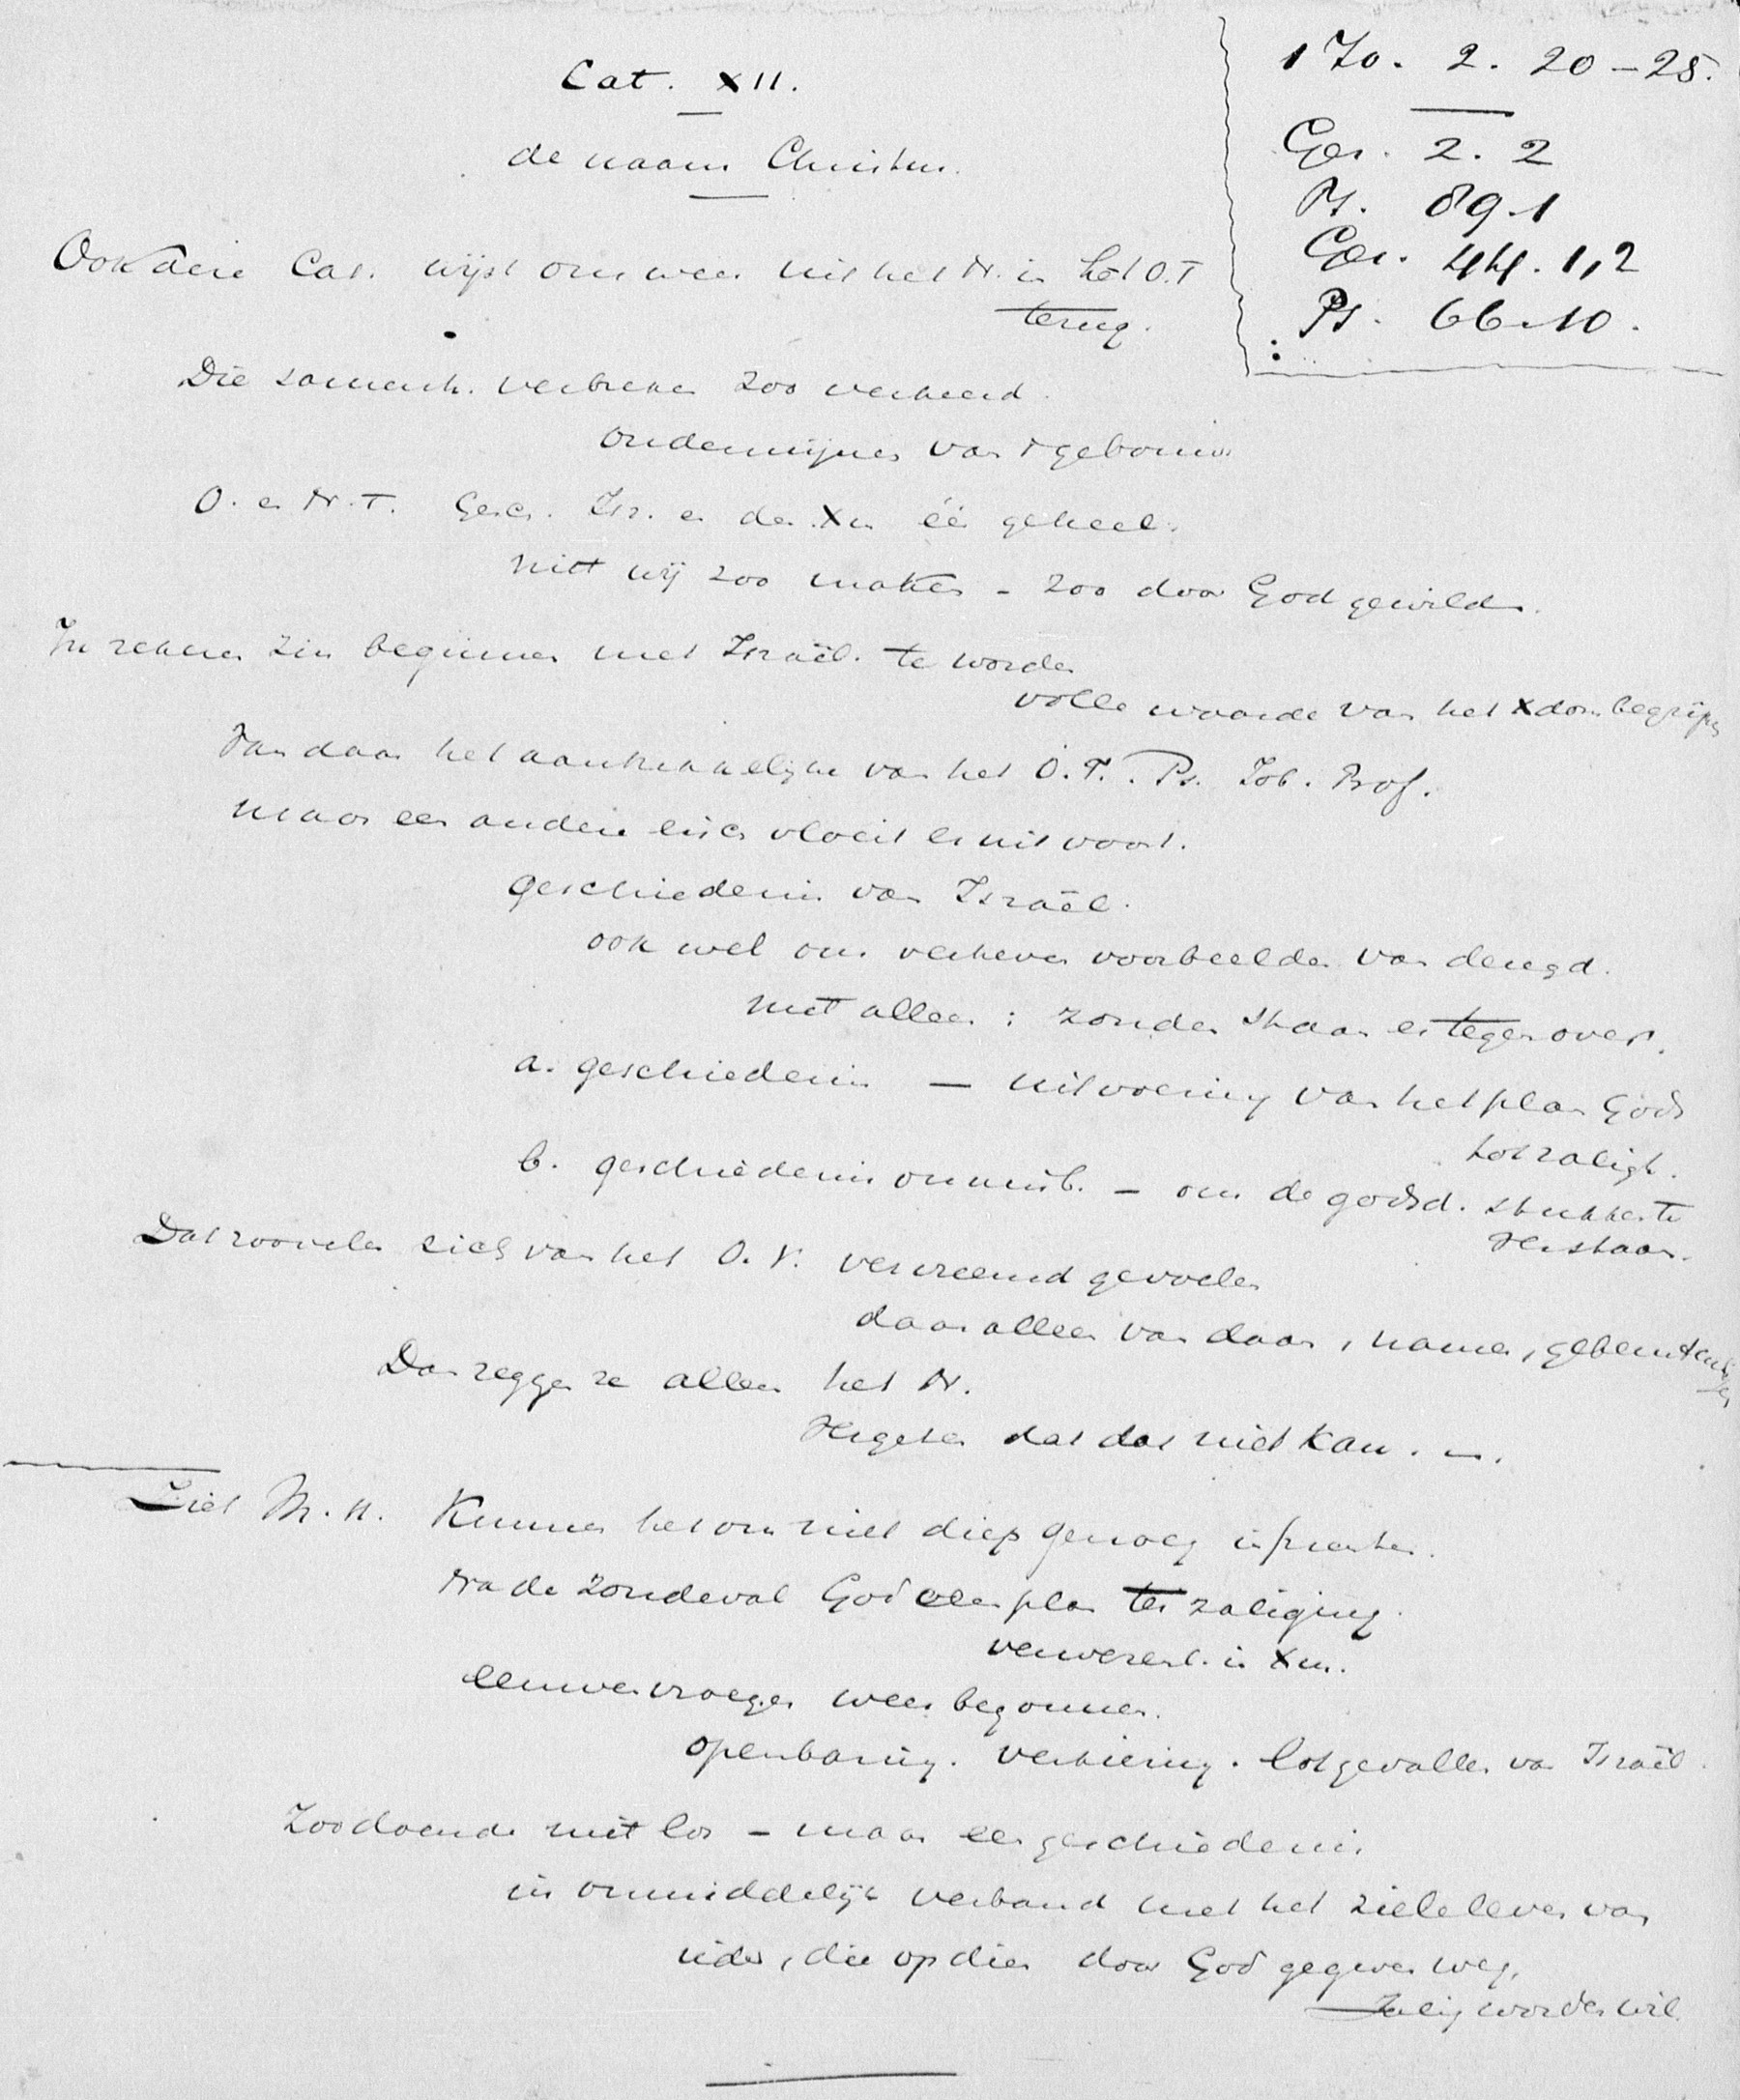 Cat. XII.
de naam Christus.
1 Jo. 2. 20-25.
Gez. 2. 2
Ps. 89.1
Gez. 44. 1,2
Ps. 66.10.
Ook deze Cat. wijst ons weer uit het N. in het O.T
terug.
Die samenh. verbreken zoo verkeerd.
ondermijnen van 't gebouw.
O. en N.T. Isr. en der Xn één geheel.
niet wij zoo maken - zoo door God gewild.
In zekeren zin beginnen met Israël te worden
volle waarde van het Xdom begrijpen
Van daar het aantrekkelijke van het O.T. Ps. Job. Prof.
maar een andere eisch vloeit er uit voort.
geschiedenis van Israël.
ook wel ons verheven voorbeelden van deugd.
niet alleen: zonden staan er tegenover.
a. geschiedenis — uitvoering van het plan Gods
tot zaligh.
b. geschiedenis onmisb. - om de godsd. stukken te
verstaan.
Dat zoovelen zich van het O.T. vervreemd gevoelen
daar alleen van daar, namen, gebeurtenissen
Dan zeggen ze alleen het N.
Vergeten dat dat niet kan.
Ziet M.H. Kunnen het ons niet diep genoeg inprenten.
Na de zondeval God een plan ter zaliging.
verwezenl. in Xus.
eeuwen vroeger weer begonnen.
openbaring. verkiezing. lotgevallen van Israël.
Zoodoende niet los - maar een geschiedenis
in onmiddelijk verband met het zieleleven van
ieder, die op dien door God gegeven weg,
Zalig worden wil.